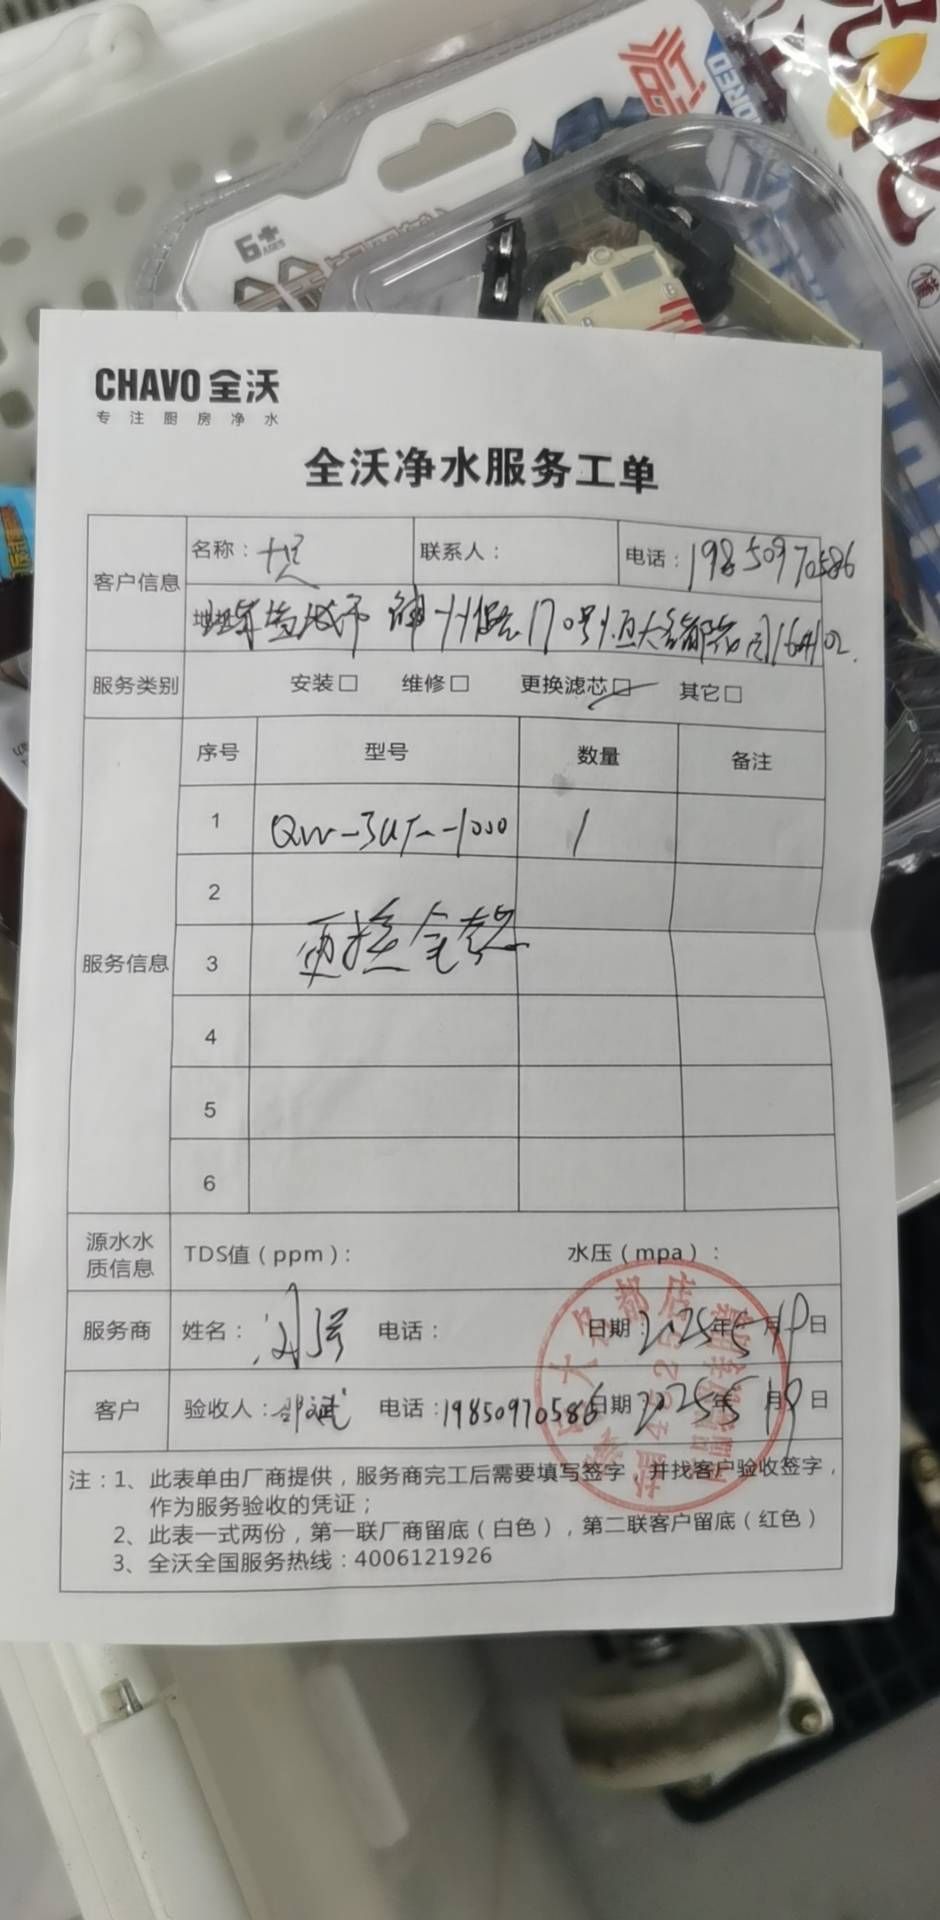 6+
AGES
CHAVO 全沃
专注厨房净水
全沃净水服务工单
客户信息
名称：
联系人：
电话：19850970586
服务类别
安装□ 维修□ 更换滤芯☑ 其它□
服务信息
序号 型号 数量 备注
1 1
2
更换全套
3
4
5
6
源水水质信息
TDS值（ppm）： 水压（mpa）：
服务商 姓名： 电话： 日期：2025年5月19日
客户 验收人： 电话：19850970586 日期：2025年5月19日
注：1、此表单由厂商提供，服务商完工后需要填写签字，并找客户验收签字，
作为服务验收的凭证；
2、此表一式两份，第一联厂商留底（白色），第二联客户留底（红色）
3、全沃全国服务热线：4006121926